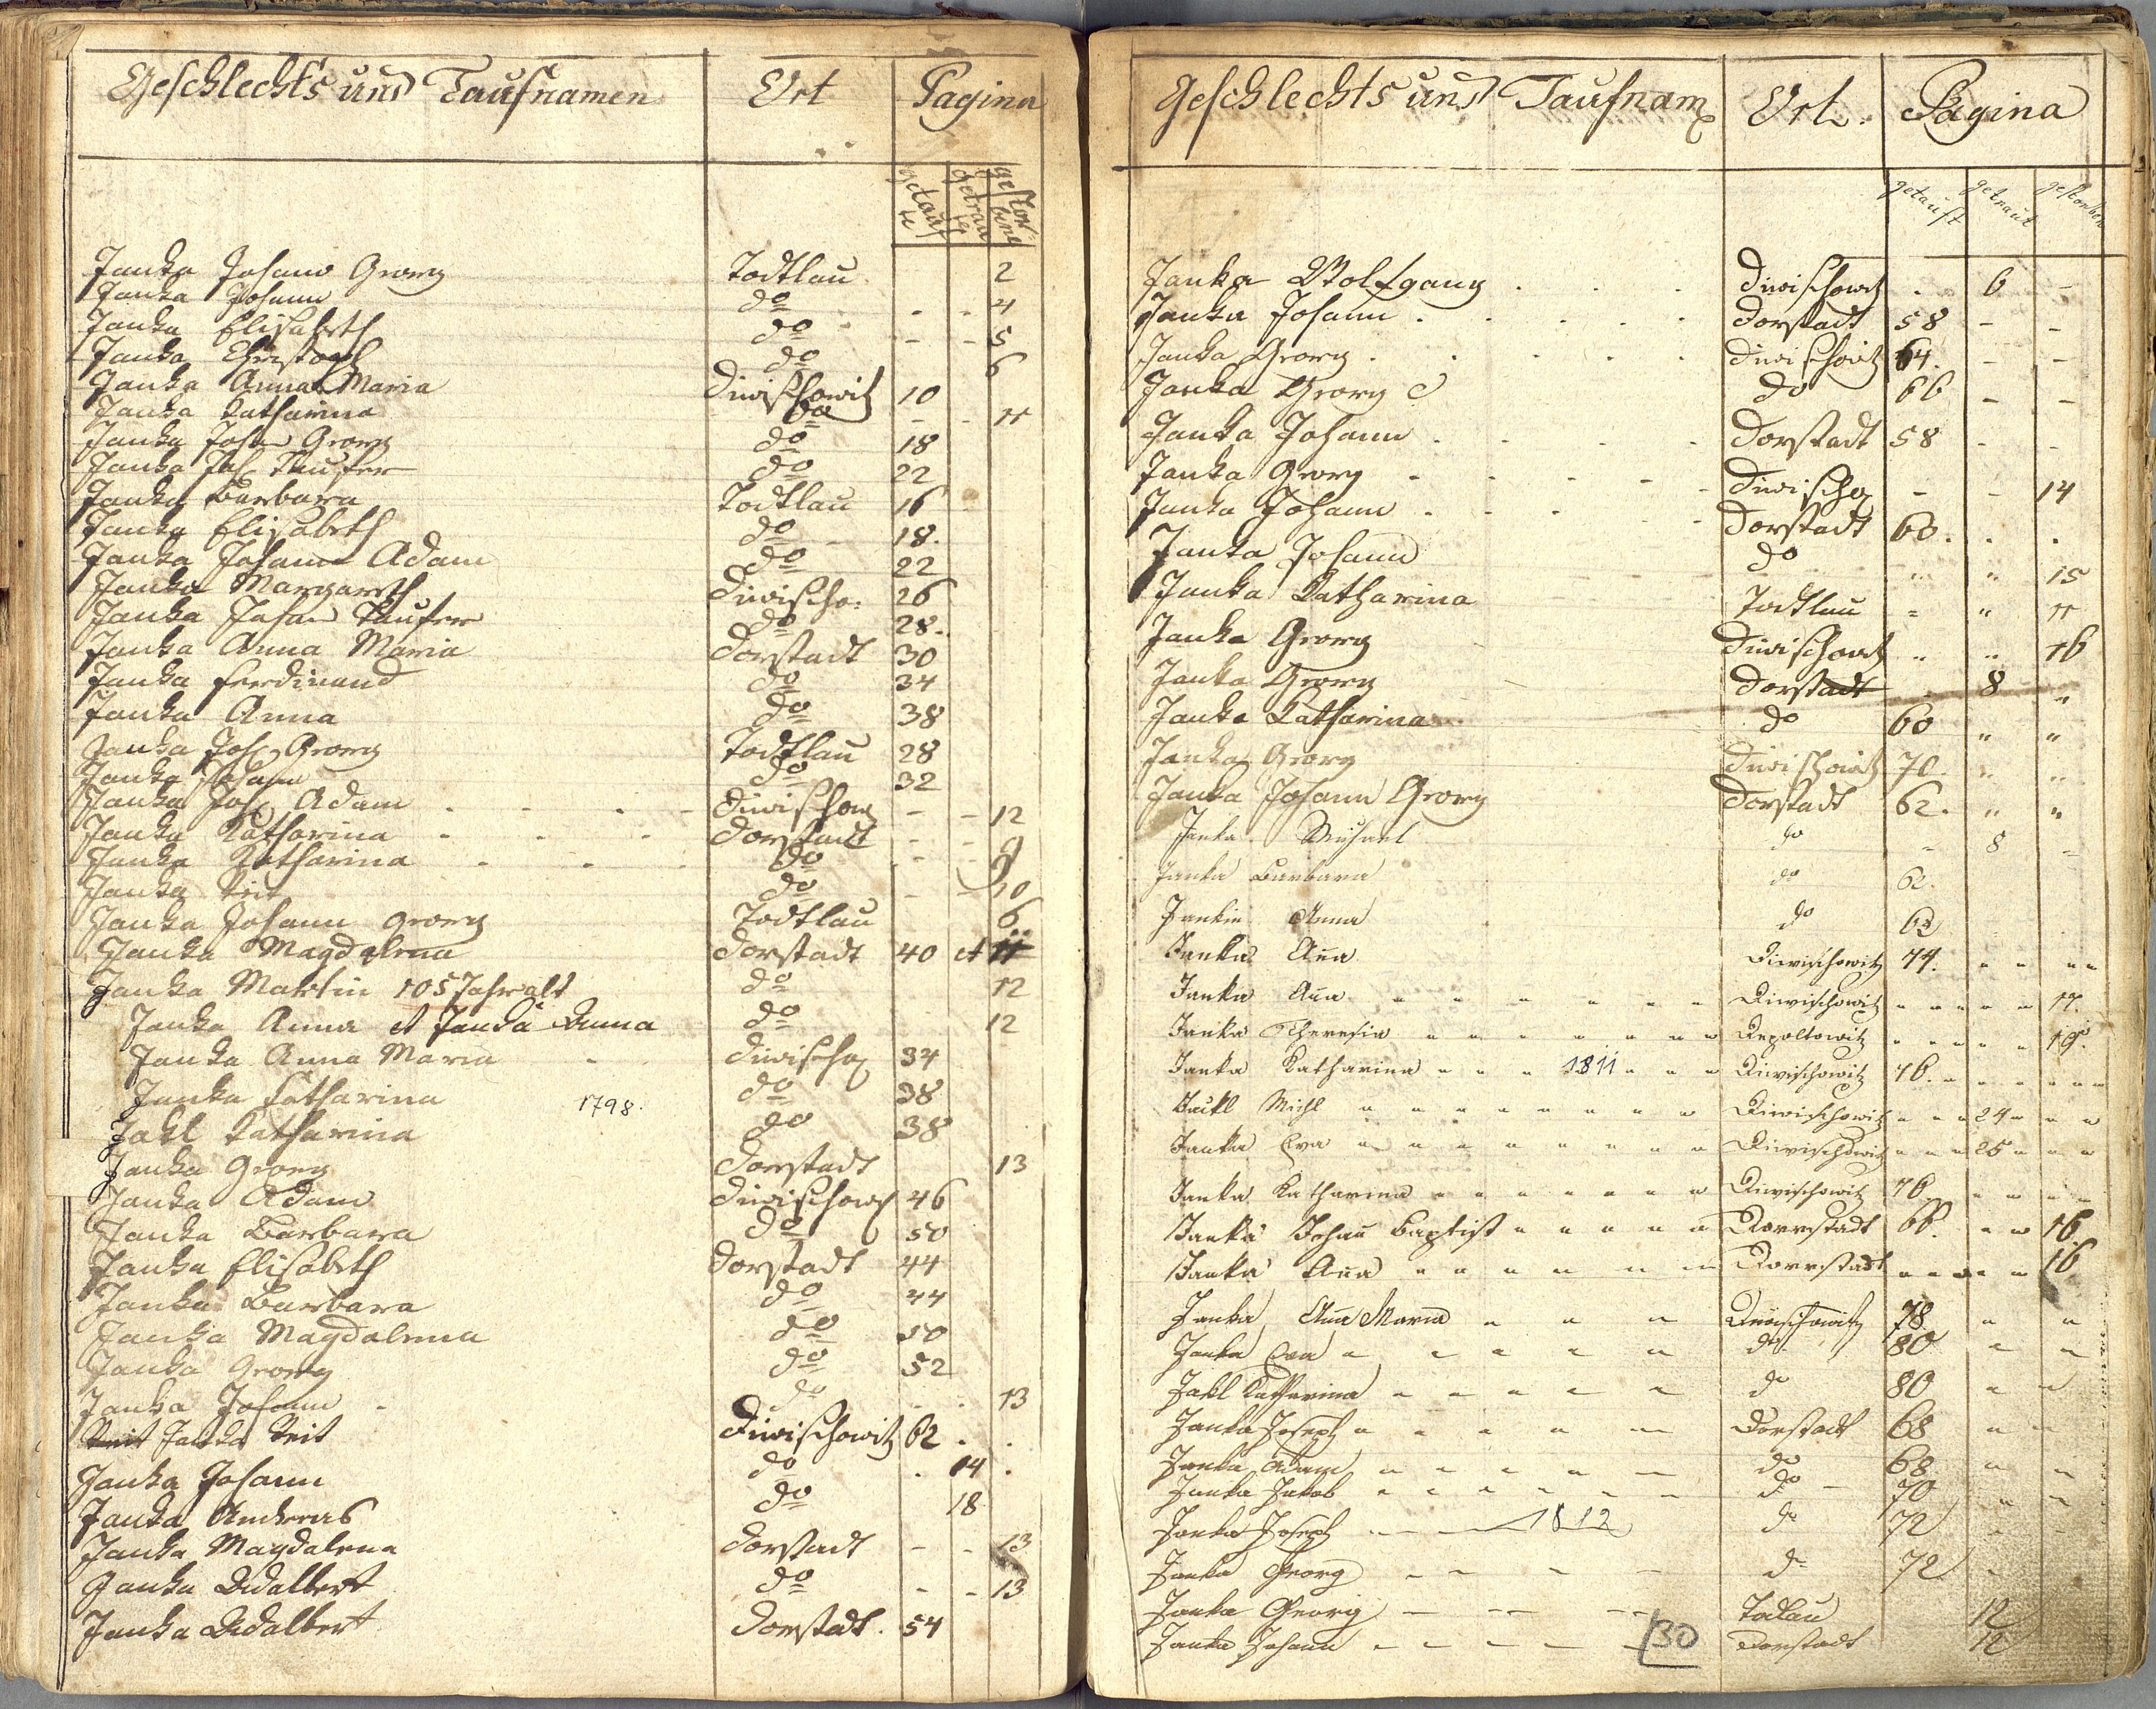 Geschlechts und Taufnamen Ort Pagina
getaufte getraute gestorbene
Janka Johann Georg Todtlau 2
Janka Johann do 4
Janka Elisabeth do 5
Janka Christoph do 6
Janka Anna Maria Diwischowitz 10
Janka Katharina do 11
Janka Johan Georg do 18
Janka Joh. Taufer do 22
Janka Barbara Todtlau 16
Janka Elisabeth do 18.
Janka Johann Adam do 22
Janka Margareth Diwischo: 26
Janka Johan Taufer do 28.
Janka Anna Maria Dorstadt 30
Janka Ferdinand do 34
Janka Anna do 38
Janka Joh. Georg Todtlau 28
Janka Johann do 32
Janka Joh. Adam Diwischow 12
Janka Katharina Dorstadt 9
Janka Katharina do 9
Janka Veit do 10
Janka Johann Georg Todtlau 6
Janka Magdalena Dorstadt 40 et 11
Janka Martin 105 Jahr alt do 12
Janka Anna et Janka Anna do 12
Janka Anna Maria Diwischo 34
Janka Katharina do 38
1798.
Jakl Katharina do 38
Janka Georg Dorstadt 13
Janka Adam Diwischow 46
Janka Barbara do 50
Janka Elisabeth Dorstadt 44
Janka Barbara do 44
Janka Magdalena do 50
Janka Georg do 52
Janka Johann do 13
Veit Janka Veit Diwischowitz 62
Janka Johann do 14
Janka Andreas do 18
Janka Magdalena Dorstadt 13
Janka Adalbert do 13
Janka Adalbert Dorstadt. 54
Geschlechts und Taufnam Ort. Pagina
getauft getraut gestorben
Janka Wolfgang Diwischowitz 6
Janka Johann Dorstadt 58
Janka Georg Diwischowitz 64.
Janka Georg do 66
Janka Johann Dorstadt 58
Janka Georg Diwischo 14
Janka Johann Dorstadt 60.
Janka Johann do 15
Janka Katharina Todtlau 11
Janka Georg Diwischowitz 16
Janka Georg Dorstadt 8
Janka Katharina do 60
Janka Georg Diwischowitz 70
Janka Johann Georg Dorstadt 62.
Janka Michael do 8
Janka Barbara do 62.
Jankin Anna do 62
Janka Aña Diwischowitz 74.
Janka Aña Diwischowitz 17.
Janka Theresia Repoltowitz 19.
Janka Katharina 1811 Diwischowitz 76.
Jaukl Michl Diwischowitz 24
Janka Eva Diwischowitz 25
Janka Katharina Diwischowitz 76.
Janka Johañ Baptist Dorrstadt 66. 16.
Janka Aña Dorrstadt 16
Janka Aña Maria Diwischowitz 78
Janka Eva do 80
Jakl Katharina do 80
Janka Joseph Dorstadt 68
Janka Adam do 68
Janka Jakob do 70
Janka Joseph 1812 do 72
Janka Georg do 72
Janka Georg Todlau 12
Janka Johann Dorstadt 12
30